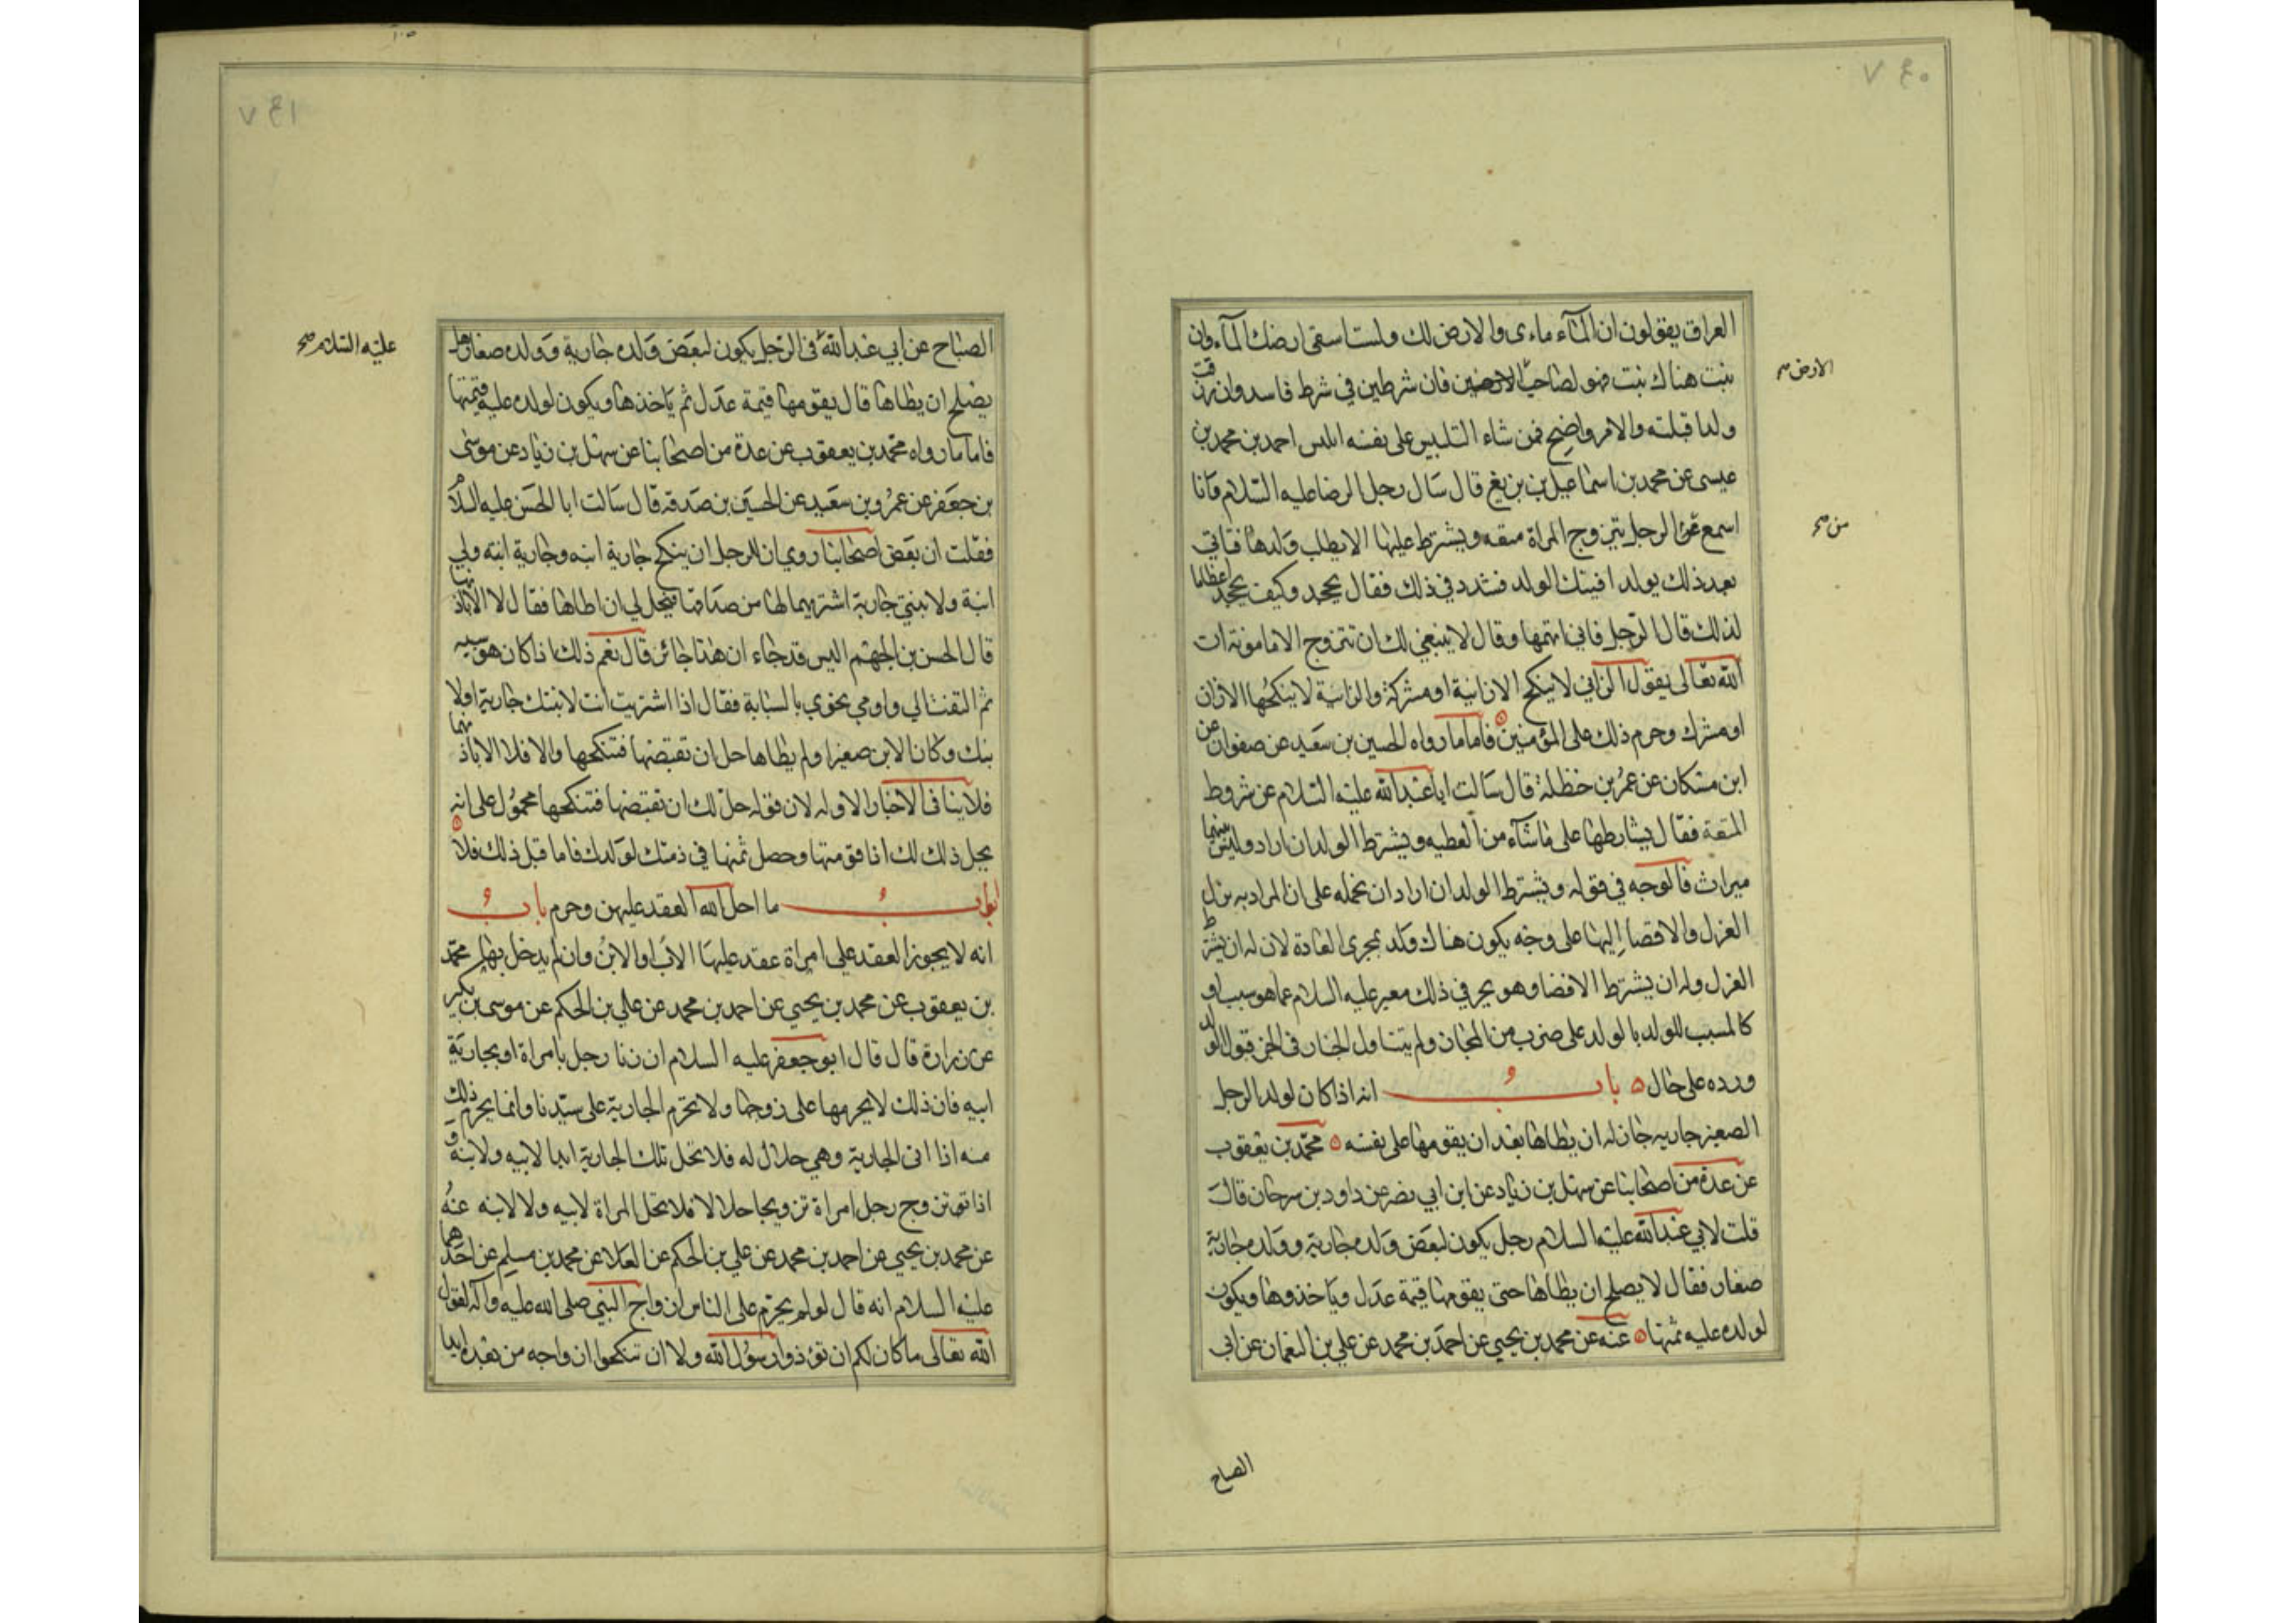 ٧٤٠
العراق يقولون ان المآء ماءى والارض لك ولست اسقى ارضك المآء وان
نبت هناك نبت فهو لصاحب الارضين فان شرطين في شرط فاسد وان رزقت
ولدا قبلته والامر واضح فمن شاء التلبيس على نفسه البس احمد بن محمد بن
عيسى عن محمد بن اسماعيل بن بزيغ قال سال رجل الرضا عليه السلام وانا
اسمع عن الرجل يتزوج المراة متعه ويشترط عليها الا يطلب ولدها فتاتى
بعد ذلك بولد افينك الولد فشدد في ذلك فقال يجحد وكيف يجحد اعظاما
لذلك قال الرجل فاني اتهمها وقال لا ينبغي لك ان تتزوج الا مامونة ان
الله تعالى يقول الزاني لا ينكح الا زانية او مشركة والزانية لا ينكحها الا زان
او مشرك وحرم ذلك على المؤمنين فاما ما رواه الحسين بن سعيد عن صفوان عن
ابن مسكان عن عمر بن حنظلة قال سالت ابا عبدالله عليه السلام عن شروط
المتعة فقال يشارطها على ما شآء من العطيه ويشترط الولد ان اراد وليس بينهما
ميراث فالوجه في قوله ويشترط الولد ان اراد ان نحمله على ان المراد به ترك
العزل والافضا اليها على وجه يكون هناك ولد بمجرى العادة لان له ان يشترط
العزل وله ان يشترط الافضا وهو يحر في ذلك معبر عليه السلام عما هو سبب او
كالمسبب للولد بالولد على ضرب من المجاز ولم يتناول الخيار في الخبر قبول الولد
ورده على حال باب انه اذا كان لولد الرجل
الصغير جاريه جاز له ان يطاها بعد ان يقومها على نفسه محمد بن يعقوب
عن عدة من اصحابنا عن سهل بن زياد عن ابن ابي نصر عن داود بن سرحان قال
قلت لابي عبدالله عليه السلام رجل يكون لبعض ولده جارية وولده
صغار فقال لا يصلح ان يطاها حتى يقومها قيمة عدل وياخذوها ويكون
لولده عليه ثمنها عنه عن محمد بن يحيي عن احمد بن محمد عن علي بن النعمان عن ابى
الارض صح
من صح
الصباح
٧٤١
الصباح عن ابي عبدالله في الرجل يكون لبعض ولده جارية وولده صغار هل
يصلح ان يطاها قال يقومها قيمة عدل ثم ياخذها ويكون لولده عليه قيمتها
فاما ما رواه محمد بن يعقوب عن عدة من اصحابنا عن سهل بن زياد عن موسى
بن جعفر عن عمرو بن سعيد عن الحسين بن صدقه قال سالت ابا الحسن عليه السلام
فقلت ان بعض اصحابنا روي ان للرجل ان ينكح جارية ابنه وجارية ابنته ولي
ابنة ولابنتي جارية اشتريتها لها من صداقها فيحل لي ان اطاها فقال لا الا باذنها
قال الحسن بن الجهم اليس قد جاء ان هذا جائز قال نعم ذلك اذا كان هو سببه
ثم التفت الي واومي نحوي بالسبابة فقال اذا اشتريت انت لابنتك جارية اولا
بنك وكان الابن صغيرا ولم يطاها حل ان تقبضها فتنكحها والا فلا الا باذنهما
فلا ينافى الاخبار الاوله لان قوله حل لك ان تقبضها فتنكحها محمول على انه
يحل ذلك لك اذا قومتها وحصل ثمنها في ذمتك لولدك فاما قبل ذلك فلا
ابواب ما احل الله العقد عليهن وحرم باب
انه لا يجوز العقد على امراة عقد عليها الاب او الابن وان لم يدخل بها محمد
بن يعقوب عن محمد بن يحيي عن احمد بن محمد عن علي بن الحكم عن موسى بن بكير
عن زرارة قال قال ابو جعفر عليه السلام ان زنا رجل بامراة او بجارية
ابيه فان ذلك لا يحرمها على زوجها ولا تحرم الجارية على سيدنا وانما يحرم ذلك
منه اذا اتى الجارية وهي حلال له فلا تحل تلك الجارية ابدا لابيه ولا بنه و
اذا تزوج رجل امراة تزويجا حلالا فلا تحل المراة لابيه ولا لابنه عنه
عن محمد بن يحيي عن احمد بن محمد عن علي بن الحكم عن العلا عن محمد بن مسلم عن احدهما
عليه السلام انه قال لو لم يحرم على الناس ازواج النبى صلى الله عليه وآله لقول
الله تعالى ما كان لكم ان تؤذوا رسول الله ولا ان تنكحوا ازواجه من بعده ابدا
عليه السلام صح